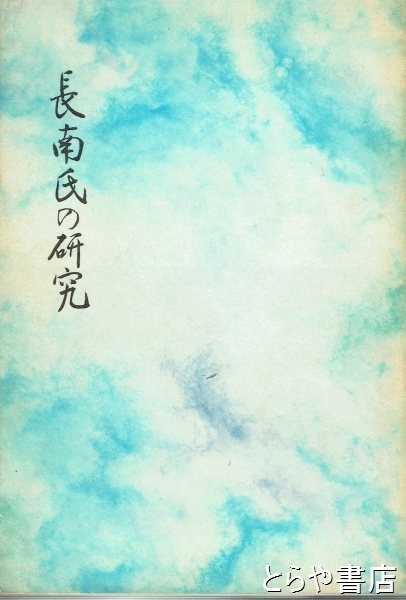 長南氏の研究
とらや書店